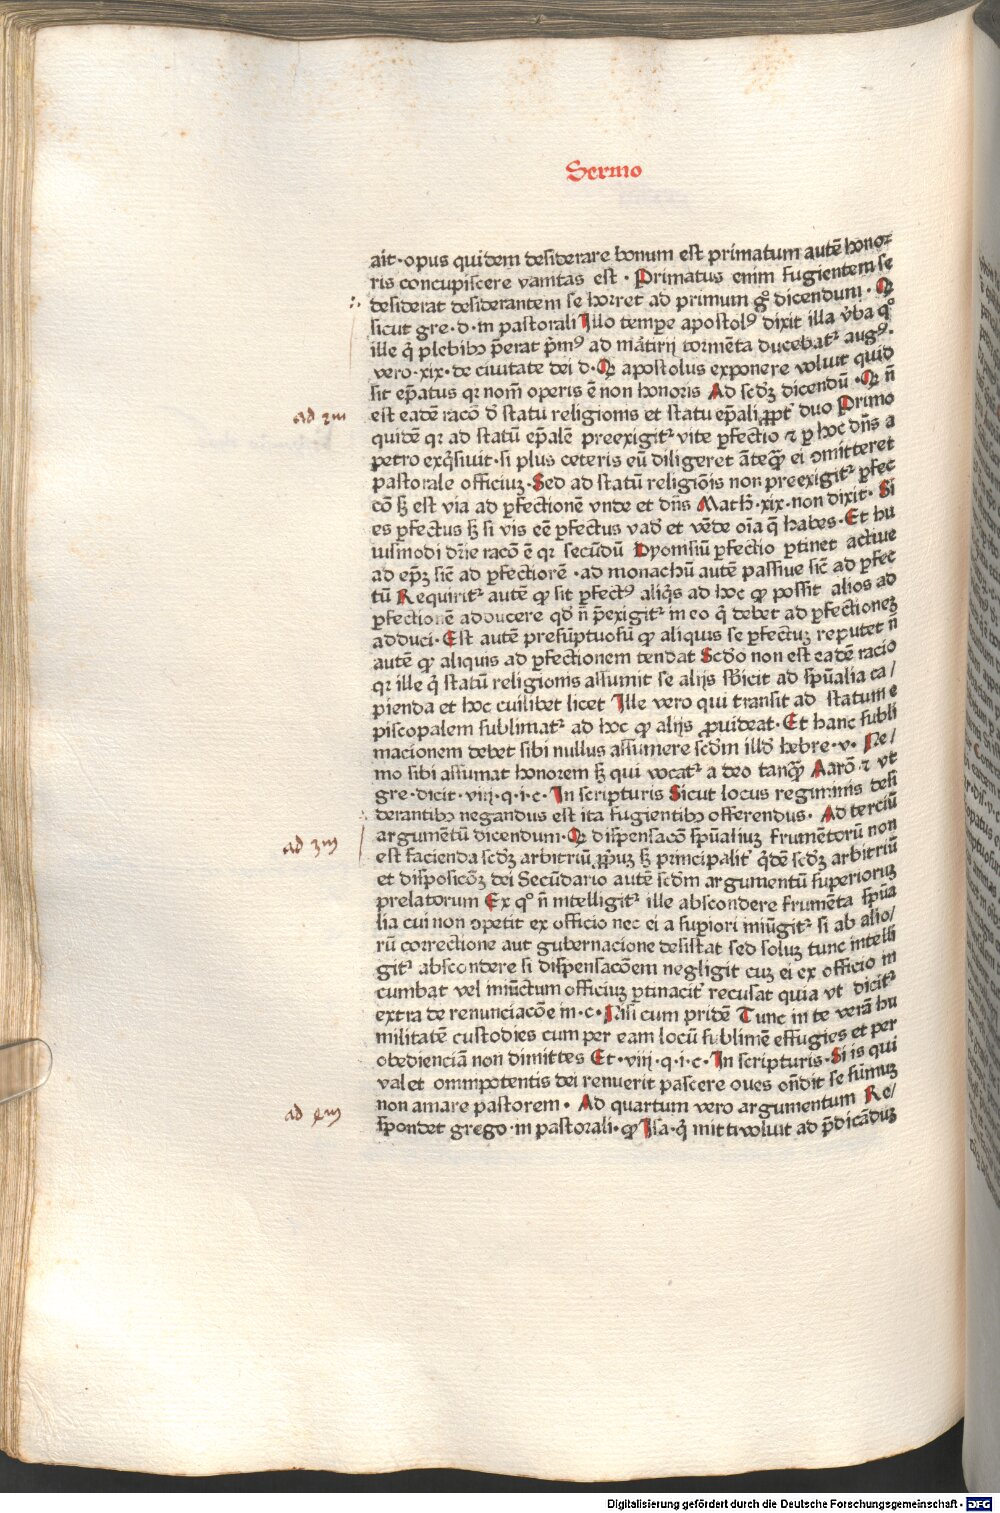 Sermo
ait · opus quidem desiderare bonum est primatum autē hono⁊
ris concupiscere vanitas est · Primatus enim fugientem se
desiderat desiderantem se horret ad primum gͦ dicendum · Qꝛ
sicut gre · d · in pastorali Illo tempe apostolꝰ dixit illa v̄ba qͦ
ille q̇ plebibꝫ p̄erat p̄mꝰ ad mātirij tormēta ducebatᷣ augꝰ ·
vero · xix · de ciuitate dei d · Qꝛ apostolus exponere voluit quid
sit ep̄atus qꝛ nom̄ operis ē non honoris Ad scd̄ꝫ dicendū · Qꝛ n̄
ad 2m
est eadē racō d̄ statu religionis et statu ep̄ali ꝓpt̕ duo Primo
quidē qꝛ ad statū ep̄alē preexigitᷣ vite ꝑfectio ⁊ ꝑ hoc dn̄s a
petro exq̇siuit · si plus ceteris eū diligeret āteqꝫ̄ ei ꝯmitteret
pastorale officiuꝫ · Sed ad statū religiōis non preexigitᷣ ꝑfec
cō sꝫ est via ad ꝑfectionē vnde et dn̄s Math̄ · xix · non dixit · Si
es ꝑfectus sꝫ si vis eē ꝑfectus vad̄ et vēde oīa q̄ habes · Et hu
iusmodi dr̄ie racō ē qꝛ secūdū Dyonisiū ꝑfectio ꝑtinet actiue
ad ep̄ꝫ sic̄ ad ꝑfectiorē · ad monachū autē passiue sic̄ ad ꝑfec
tū Requiritᷣ autē ꝙ sit ꝑfectꝰ aliq̇s ad hoc ꝙ possit alios ad
ꝑfectionē adducere qd̄ n̄ p̄exigitᷣ in eo q̇ debet ad ꝑfectioneꝫ
adduci · Est autē presūptuosū ꝙ aliquis se ꝑfectuꝫ reputet n̄
autē ꝙ aliquis ad ꝑfectionem tendat Scd̄o non est eadē racio
qꝛ ille q̇ statū religionis assumit se alijs sb̄icit ad spūalia ca/
pienda et hoc cuilibet licet Ille vero qui transit ad statum e
piscopalem sublimatᷣ ad hoc ꝙ alijs ꝓuideat · Et hanc subli
macionem debet sibi nullus assumere scd̄m illd̄ hebre · v · Ne/
mo sibi assumat honorem sꝫ qui vocatᷣ a deo tanqꝫ̄ Aarō ⁊ vt
gre · dicit · viij · q · i · c · In scripturis Sicut locus regiminis desi
derantibꝫ negandus est ita fugientibꝫ offerendus · Ad terciū
ad 3m
argumētū dicendum · Qꝛ dispensacō spūaliuꝫ frumētorū non
est facienda scd̄ꝫ arbitriū ꝓpiuꝫ sꝫ principalit̕ q̇dē scd̄ꝫ arbitriū
et disposicōꝫ dei Secūdario autē scd̄m argumentū superioruꝫ
prelatorum Ex qͦ n̄ intelligitᷣ ille abscondere frumēta spūa
lia cui non ꝯpetit ex officio nec ei a superiori iniūgitᷣ si ab alio/
rū correctione aut gubernacione desistat sed soluꝫ tunc intelli
gitᷣ abscondere si dispensacōem negligit cuꝫ ei ex officio in
cumbat vel iniūctum officiuꝫ ꝑtinacit̕ recusat quia vt dicitᷣ
extra de renunciacōe in · c · Nisi cum pridē Tunc in te verā hu
militatē custodies cum per eam locū sublimē effugies et per
obedienciā non dimittes Et · viij · q · i · c · In scripturis · Si is qui
valet omnipotentis dei renuerit pascere oues on̄dit se summuꝫ
ad 4m
non amare pastorem · Ad quartum vero argumentum Re/
spondet grego · in pastorali · ꝙ Isa · q̇ mitti voluit ad p̄dicāduꝫ
Digitalisierung gefördert durch die Deutsche Forschungsgemeinschaft · DFG